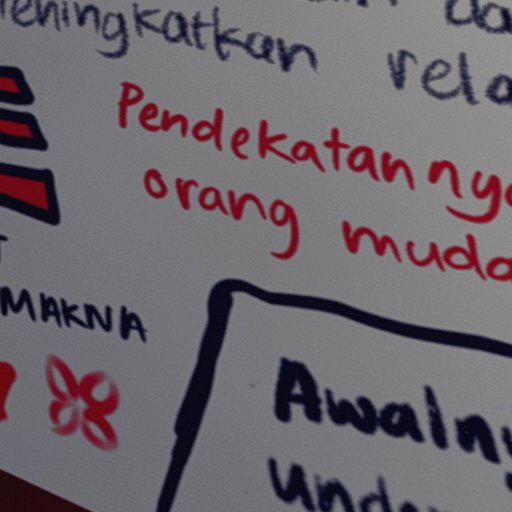 meningkatkan rela
Pendekatannya
orang muda
MAKNA
Awalny